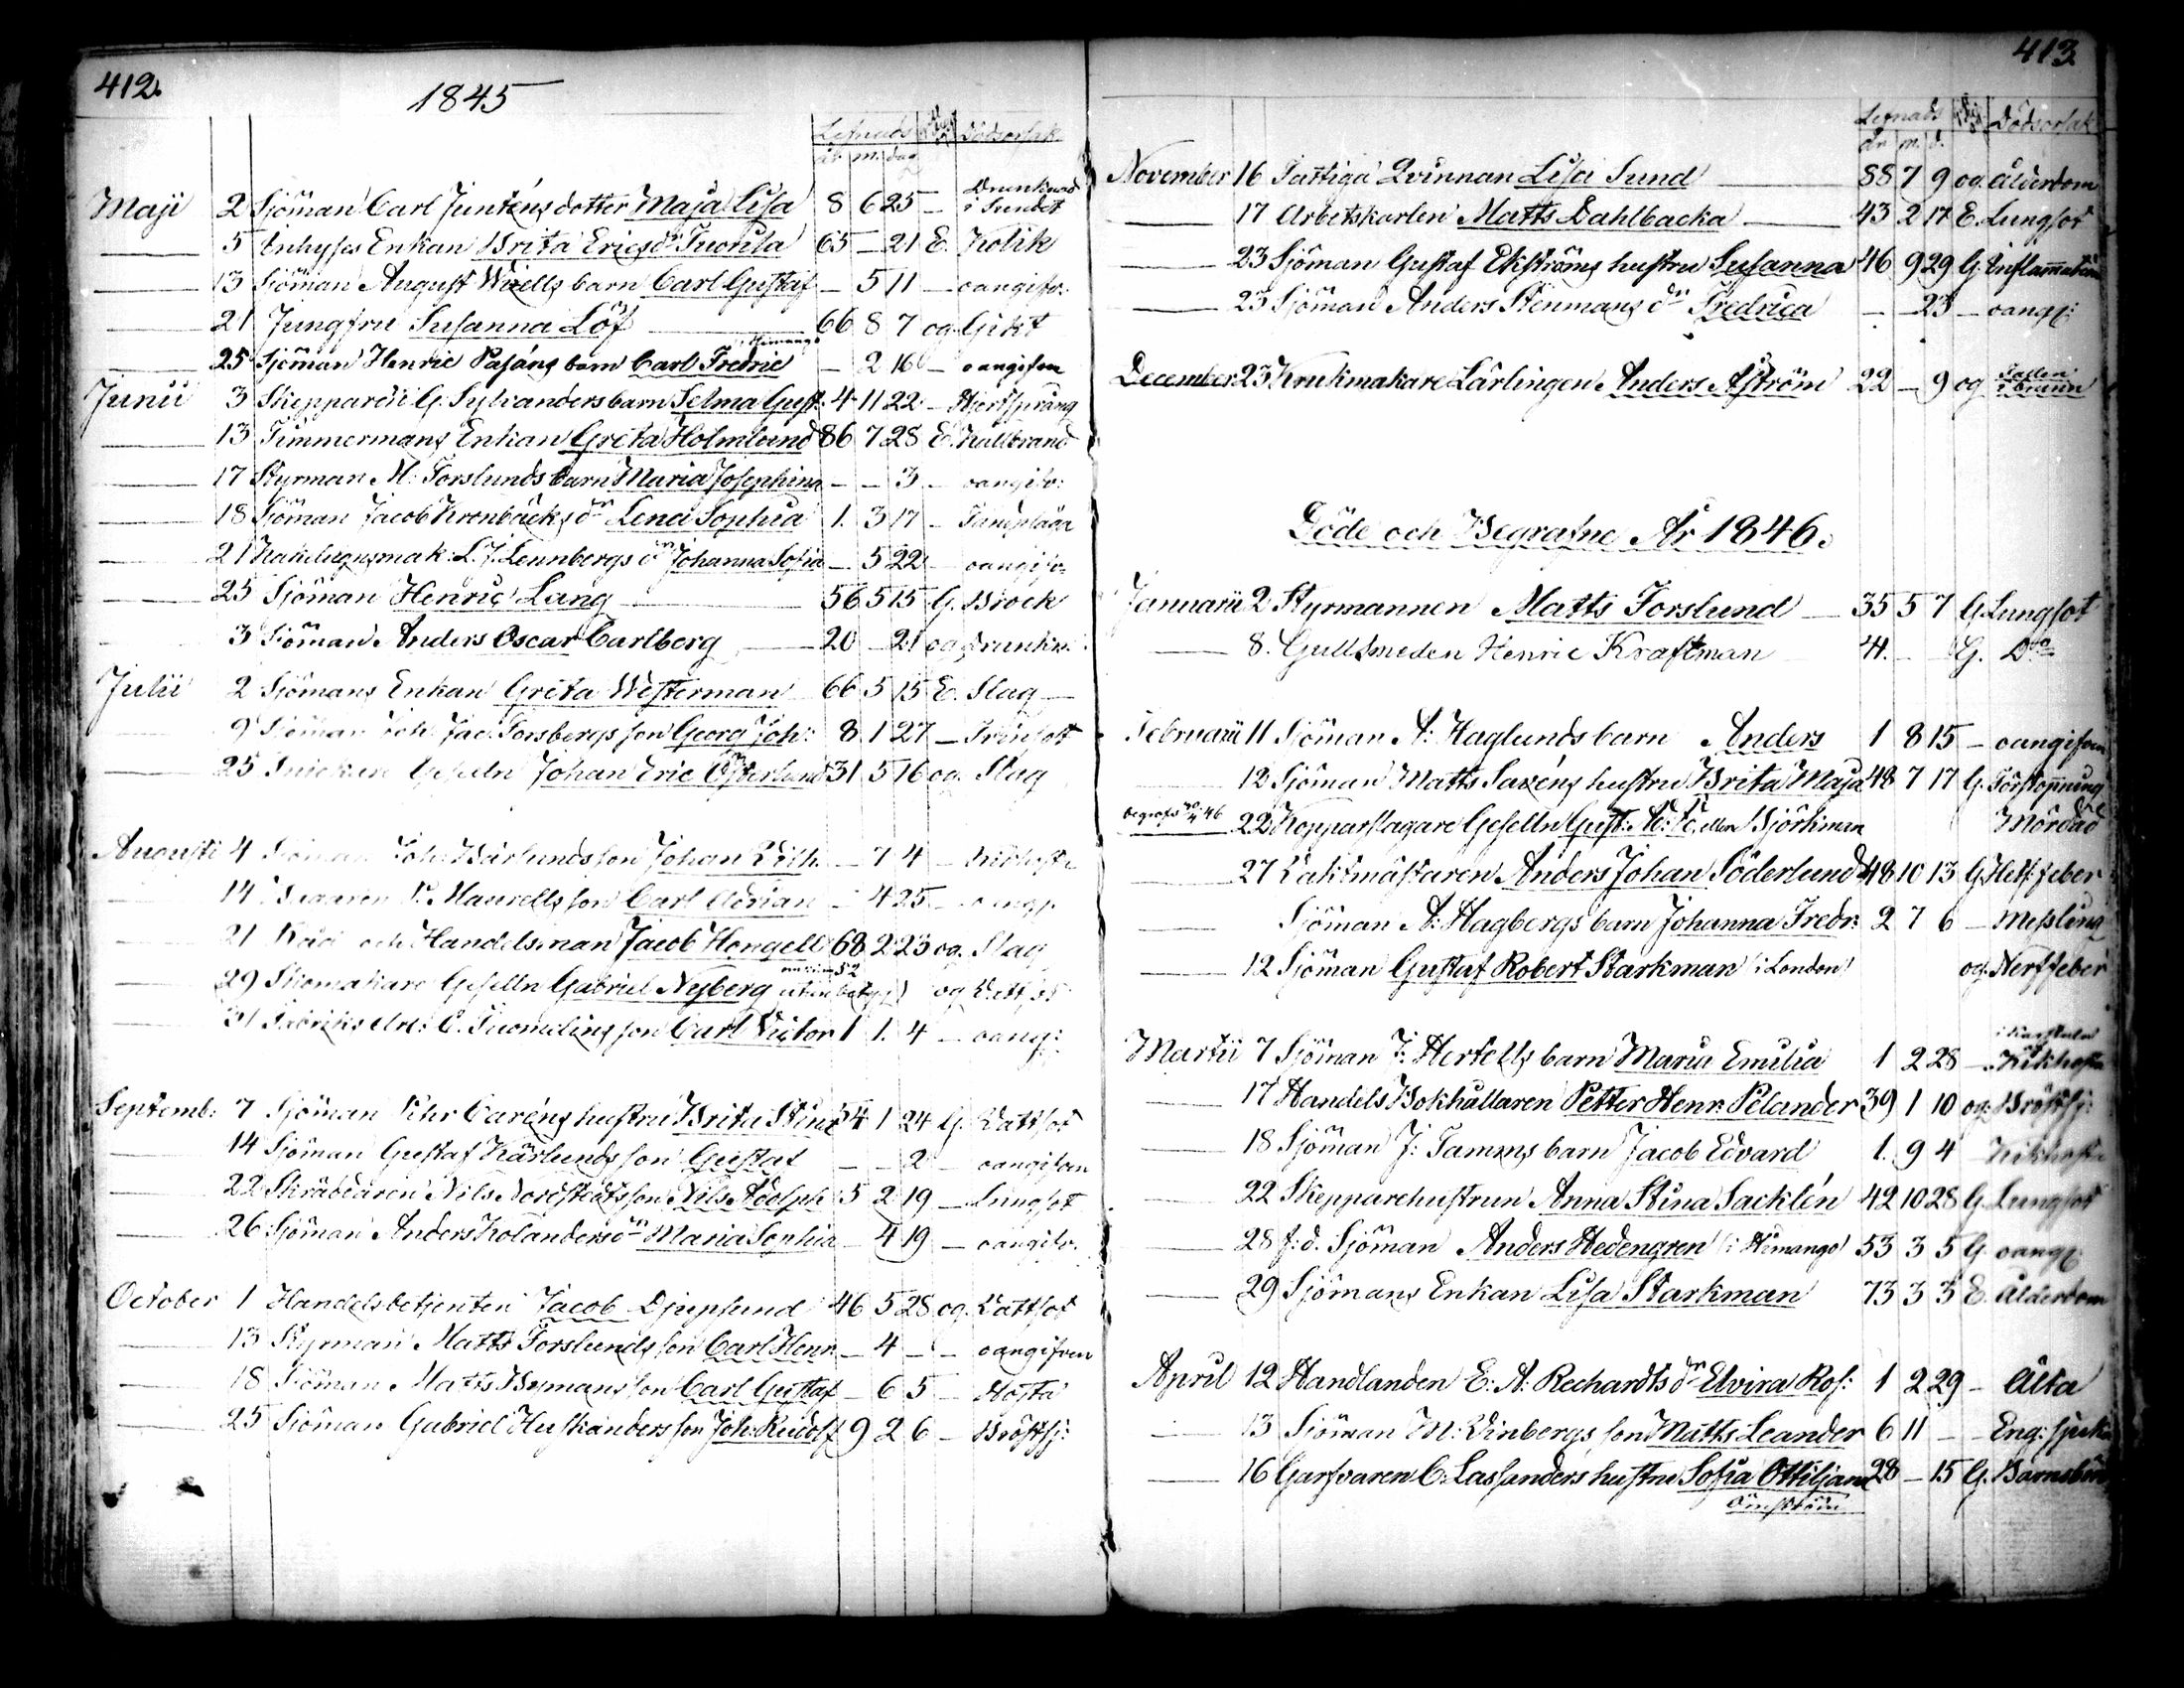 412.
1845
Lefnads Dödsorsak
år m. dag
Drunknad
Maji 2 Sjöman Carl Junténs dotter Maja Lisa 8 6 25 — i Sundet
5 Inhyses Enkan Brita Ericsdr Tuorila 65 — 21 E. Kolik
13 Sjöman August Wixells barn Carl Gustaf — 5 11 — oangifv:
21 Jungfru Susanna Löf 66 8 7 og. Gikt
i Himango
25 Sjöman Henric Pasáns barn Carl Fredric — 2 16 — oangifven
Junii 3 Skepparen G. Sylvanders barn Selma Gust: 4 11 22 — Hjertsprång
13 Timmermans Enkan Greta Holmlund 86 7 28 E. Kallbrand
17 Styrman M: Forslunds barn Maria Josephina — — 3 — oangifv:
18 Sjöman Jacob Kronbäcks dr Lena Sophia 1. 3 17 — Tandplåga
21 Kakelugnsmak: L. J. Lennbergs dr Johanna Sofia — 5 22 — oangifv:
25 Sjöman Henric Lang 56 5 15 G. Bröck
3 Sjöman Anders Oscar Carlberg 20 — 21 og drunkn:
Julii 2 Sjömans Enkan Greta Westerman 66 5 15 E. Slag
9 Sjöman Joh. Jac. Forsbergs son Georg Joh: 8 1 27 —
25 Snickare Geselln Johan Eric Österlund 31 5 16 og. Slag
Augusti 4 Sjöman Joh. Kärlunds son Johan Vilh. — 7 4 — Kikhosta
14 P. Maurells son Carl Adrian — 4 25 — oangf.
21 Råd och Handelsman Jacob Hongell 68 2 23 og. Slag
52
29 Skomakare Geselln Gabriel Nyberg utan betyg og Vattsot
31 Fabriks Arb: C. Tuomelins son Carl Victor 1 1. 4 — oangf:
Septemb: 7 Sjöman Pehr Caréns hustru Brita Stina 54 1 24 G. Vattsot
14 Sjöman Gustaf Kärlunds son Gustaf — — 2 — oangifven
22 Skräddaren Nils Nordstedts son Nils Adolph 5 2 19 — Lungsot
26 Sjöman Anders Kolanders dr Maria Sophia — 4 19 — oangifv.
October 1 Handelsbetjenten Jacob Djupsund 46 5 28 og. Vattsot
13 Styrman Matts Forslunds son Carl Henr. — 4 — — oangifven
18 Sjöman Matts Nymans son Carl Gustaf — 6 5 — Hosta
25 Sjöman Gabriel Huskanders son Joh: Rudolf 9 2 6 — Bröstsj:
413.
Lefnads Dödsorsak
år m. d.
November 16 Fattiga Qvinnan Lisa Sund 88 7 9 og. Ålderdom
17 Arbetskarlen Matts Dahlbacka 43 2 17 E. Lungsot
23 Sjöman Gustaf Ekströms hustru Susanna 46 9 29 G. Inflammation
23 Sjöman Anders Stenmans dr Fredrica — — 23 — oangf:
Fallen
December 23 Krukmakare Lärlingen Anders Åström 22 — 9 og i brunn
Döde och Begrafne År 1846.
Januarii 2 Styrmannen Matts Forslund 35 5 7 G. Lungsot
8. Gullsmeden Henric Kraftman 41. — G. Do
Februarii 11 Sjöman A: Haglunds barn Anders 1 8 15 — oangifven
12 Sjöman Matts Saxéns hustru Brita Maja 48 7 17 G. Förstoppning
begrafs 46 22 Kopparslagare Geselln Gust: Björkman Mördad
27 Vaktmästaren Anders Johan Söderlund 48 10 13 G. feber
Sjöman A: Hagbergs barn Johanna Fredr: 2 7 6 — Messling
12 Sjöman Gustaf Robert Starkman (i London) og. Nerffeber
Martii 7 Sjöman J: Hertells barn Maria Emilia 1 2 28 — Kikhosta
17 Handels Bokhållaren Petter Henr. Pelander 39 1 10 og: Bröstsj:
18 Sjöman J: Tamms barn Jacob Edvard 1. 9 4 Kikhosta
22 Skepparehustrun Anna Stina Sacklén 42 10 28 G. Lungsot
28 f:d. Sjöman Anders Hedengren (i Himango) 53 3 5 G. oangf:
29 Sjömans Enkan Lisa Starkman 73 3 3 E. Ålderdom
April 12 Handlanden E: A: Rechardts dr Elvira Ros: 1 2 29 — Älta
13 Sjöman M: Vinbergs son Matts Leander 6 11 — — Eng: sjuka
16 Garfvaren C: Lassanders hustru Sofia Ottiljana 28 — 15 G. Barnsbörd